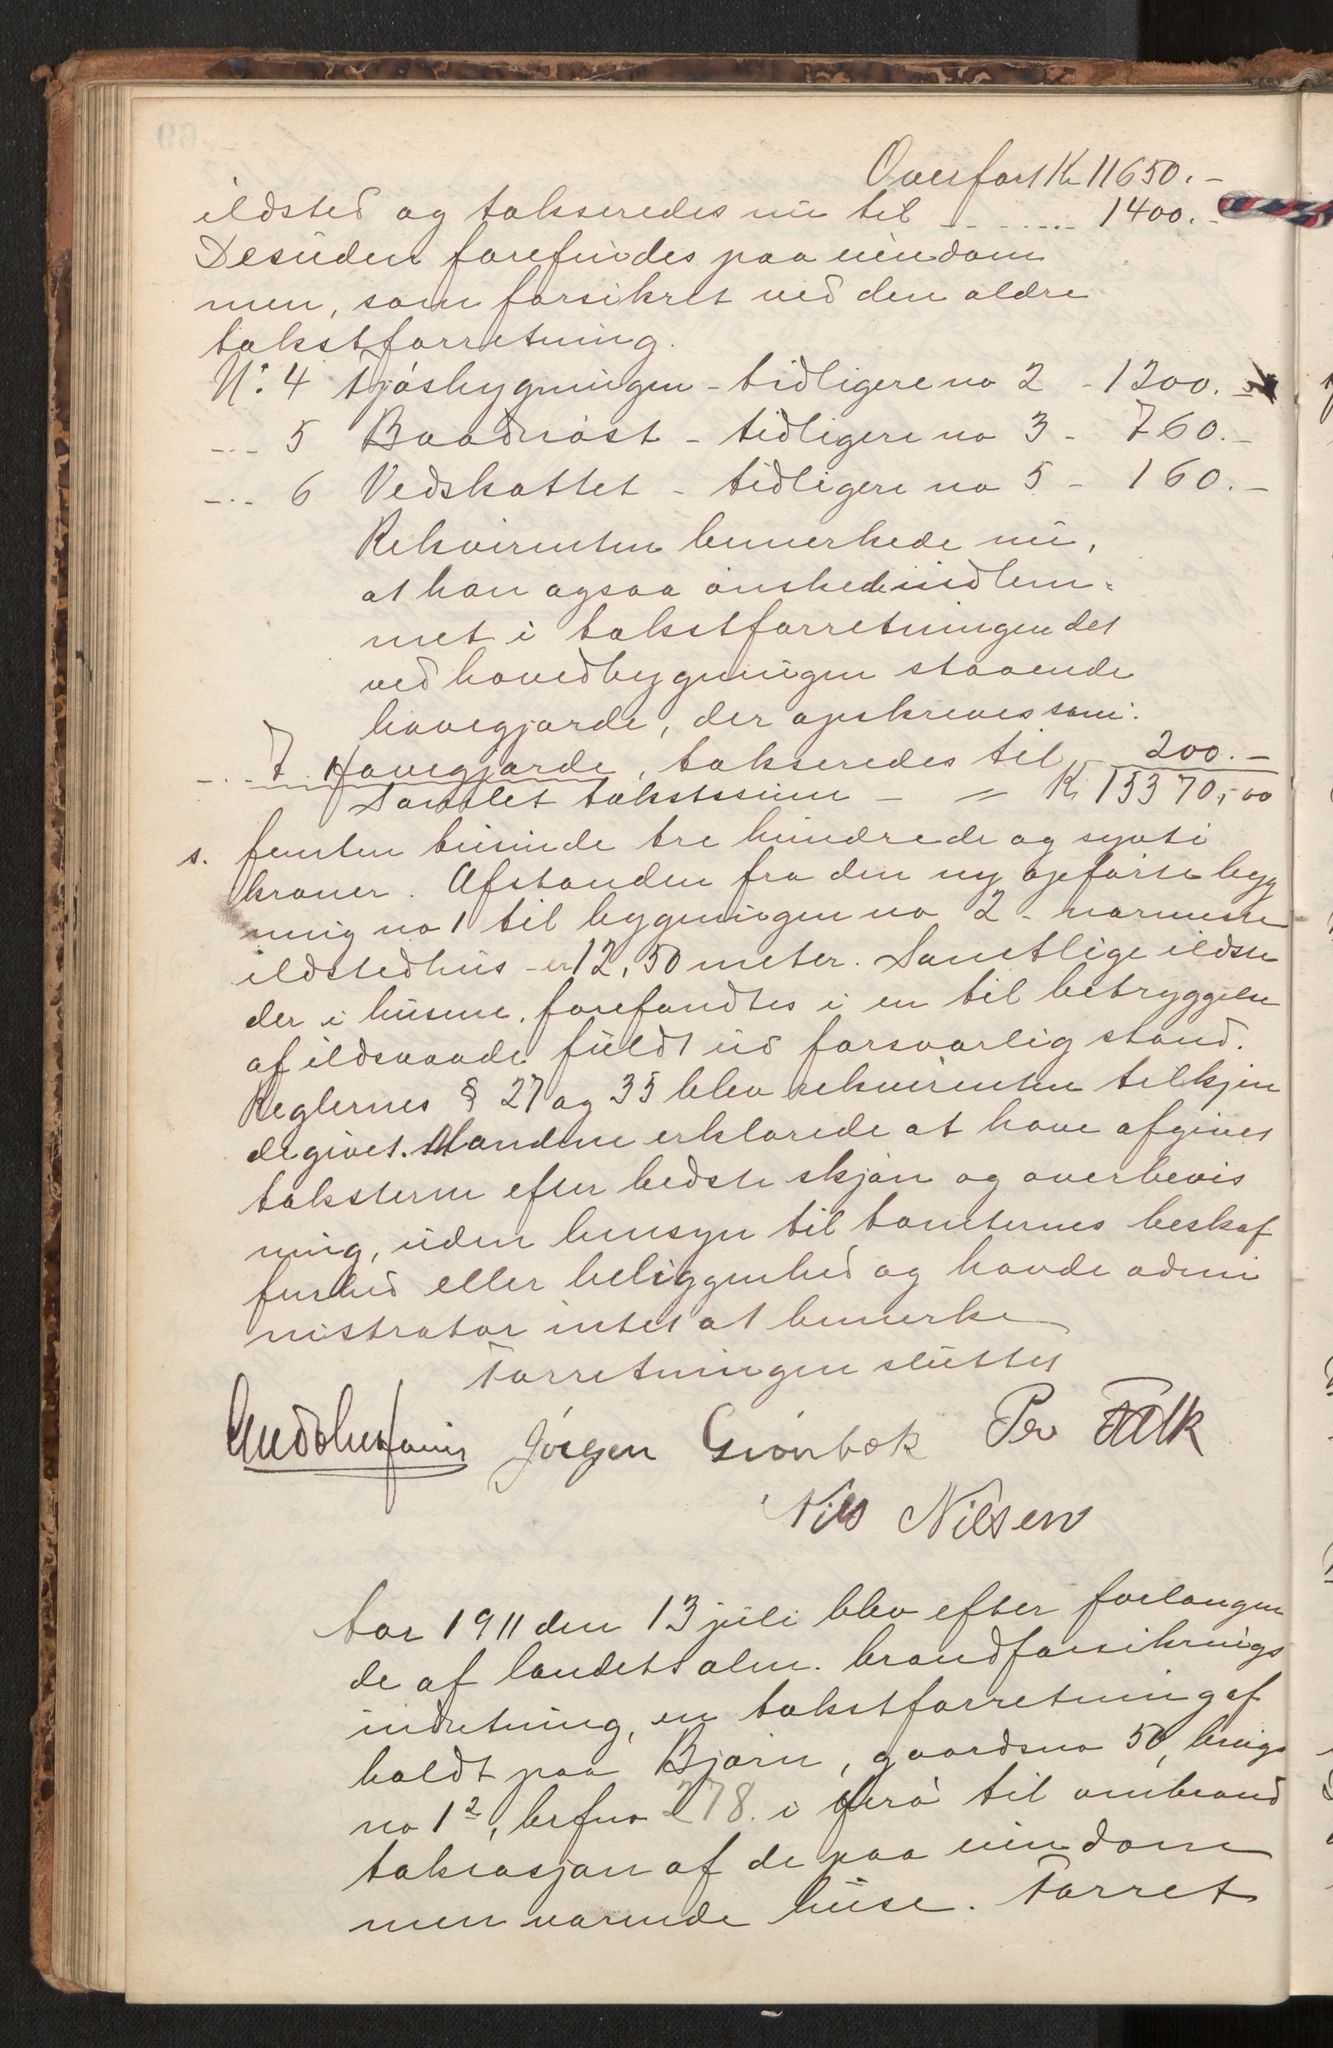 Overført Kr 11650.-
ildsted og takseredes nu til - - - - ... 1400.-
Desuden forefindes paa eiendom
men, som forsikret ved den ældre
takstforretning.
No. 4 Fjøsbygningen - tidligere no 2 - 1200.-
-..- 5 Baadnøst - tidligere no 3 - 760.-
-..- 6 Vedskottet - tidligere no 5 - 160.-
Rekvirenten bemerkede nu,
at han ogsaa ønskede indlem-
met i takstforretningen det
ved hovedbygningen staaende
havegjærde, der opskreves som:
-..- 7. Havegjærde, takseredes til 200.-
Samlet takstsum - " Kr 15370,00
s. femten tusinde tre hundrede og sytti
kroner. Afstanden fra den ny opførte byg
ning no 1 til bygningen no 2 - nærmeste
ildstedhus - er 12,50 meter. Samtlige ildste
der i husene forefandtes i en til betryggelse
af ildsvaade fuldt ud forsvarlig stand.
Reglernes § 27 og 35 blev rekvirenten tilkjen
degivet. Mændene erklærede at have afgivet
taksterne efter bedste skjøn og overbevis
ning, uden hensyn til tomternes beskaf
fenhed eller beliggenhed og havde admi
nistrator intet at bemerke
Forretningen sluttet
Jørgen Grønbæk Per Falk
Nils Nilsen
Aar 1911 den 13 juli blev efter forlangen
de af landets alm. brandforsikrings
indretning, en takstforretning af
holdt paa Bjørn, gaardsno 50, brugs
no 1², brfno 278. i Herø til ombrand
taksasjon af de paa eiendom
men værende huse. Forret